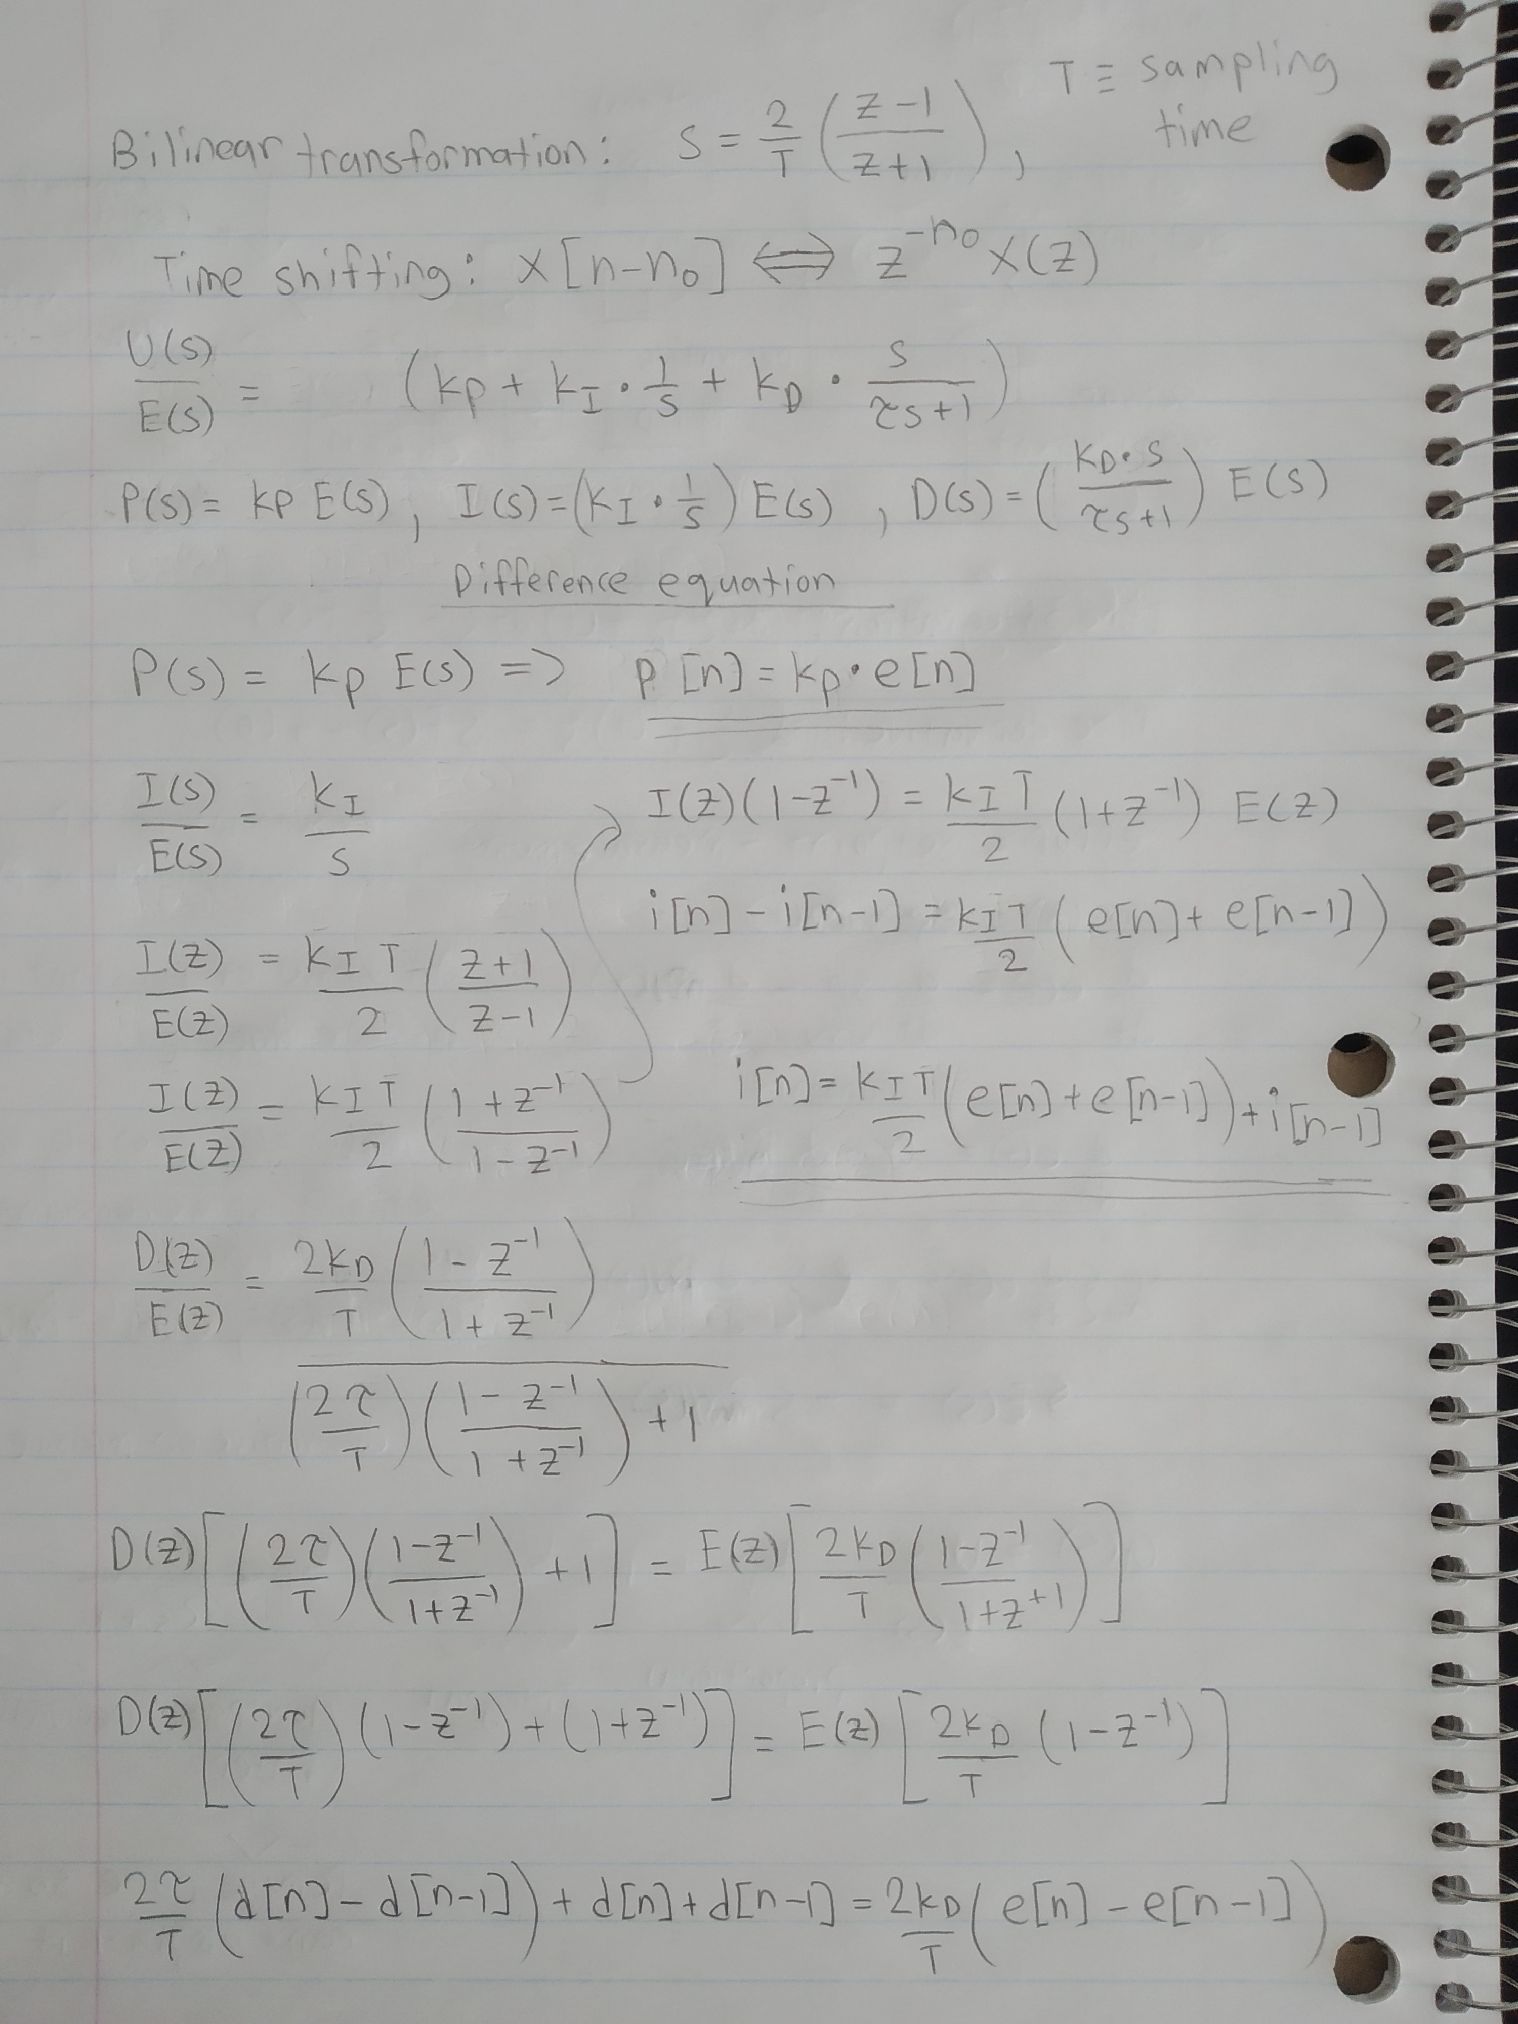 T ≡ sampling time
Bilinear transformation: S = 2/T ( (z-1)/(z+1) ),
Time shifting: x[n-n₀] ⟺ z^(-n₀) X(z)
U(s)/E(s) = (kp + k_I · 1/s + k_D · s/(τs+1))
P(s) = kp E(s), I(s) = (k_I · 1/s) E(s), D(s) = ( (k_D · s)/(τs+1) ) E(s)
Difference equation
P(s) = kp E(s) => p[n] = kp · e[n]
I(s)/E(s) = k_I/s
I(z)/E(z) = k_I T/2 ( (z+1)/(z-1) )
I(z)/E(z) = k_I T/2 ( (1+z⁻¹)/(1-z⁻¹) )
I(z)(1-z⁻¹) = k_I T/2 (1+z⁻¹) E(z)
i[n] - i[n-1] = k_I T/2 (e[n] + e[n-1])
i[n] = k_I T/2 (e[n] + e[n-1]) + i[n-1]
D(z)/E(z) = [ 2k_D/T ( (1-z⁻¹)/(1+z⁻¹) ) ] / [ (2τ/T) ( (1-z⁻¹)/(1+z⁻¹) ) + 1 ]
D(z) [ (2τ/T) ( (1-z⁻¹)/(1+z⁻¹) ) + 1 ] = E(z) [ 2k_D/T ( (1-z⁻¹)/(1+z⁺¹) ) ]
D(z) [ (2τ/T) (1-z⁻¹) + (1+z⁻¹) ] = E(z) [ 2k_D/T (1-z⁻¹) ]
2τ/T (d[n] - d[n-1]) + d[n] + d[n-1] = 2k_D/T (e[n] - e[n-1])